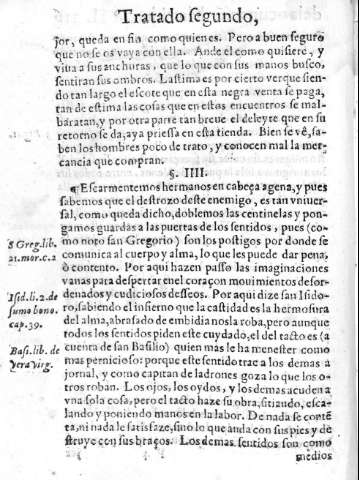 Tratado segundo,
jor, queda en fin como quien es. Pero a buen seguro
que no se os vaya con ella. Ande el como quisiere, y
viva a sus anchuras, que lo que con sus manos busco,
sentiran sus ombros. Lastima es por cierto ver que sien-
do tan largo el escote que en esta negra venta se paga,
tan de estima las cosas que en estos encuentros se mal-
baratan, y por otra parte tan breue el deleyte que en su
retorno se da, aya priessa en esta tienda. Bien se vè, sa-
ben los hombres poco de trato, y conocen mal la mer-
cancia que compran.
§. IIII.
¶Escarmentemos hermanos en cabeça agena, y pues
sabemos que el destrozo deste enemigo, es tan vniuer-
sal, como queda dicho, doblemos las centinelas y pon-
gamos guardas a las puertas de los sentidos, pues (co-
mo noto san Gregorio) son los postigos por donde se
S Greg. lib.
21. mor. c. 2
comunica al cuerpo y alma, lo que les puede dar pena,
ò contento. Por aqui hazen passo las imaginaciones
vanas para despertar en el coraçon mouimientos desor-
denados y cudiciosos desseos. Por aqui dize san Isido-
Isid. li. 2. de
sumo bono.
cap. 39.
ro, sabiendo el infierno que la castidad es la hermosura
del alma, abrasado de embidia nos la roba, pero aunque
todos los sentidos piden este cuydado, el del tacto es (a
cuenta de san Basilio) quien mas le ha menester como
Bas. lib. de
vera virg.
mas pernicioso: porque este sentido trae a los demas a
jornal, y como capitan de ladrones goza lo que los o-
tros roban. Los ojos, los oydos, y los demas acuden a
vna sola cosa, pero el tacto haze su obra, sitiando, esca-
lando y poniendo manos en la labor. De nada se contẽ
ta, ni nada le satisfaze, sino lo que anda con sus pies y de
struye con sus braços. Los demas sentidos son como
medios